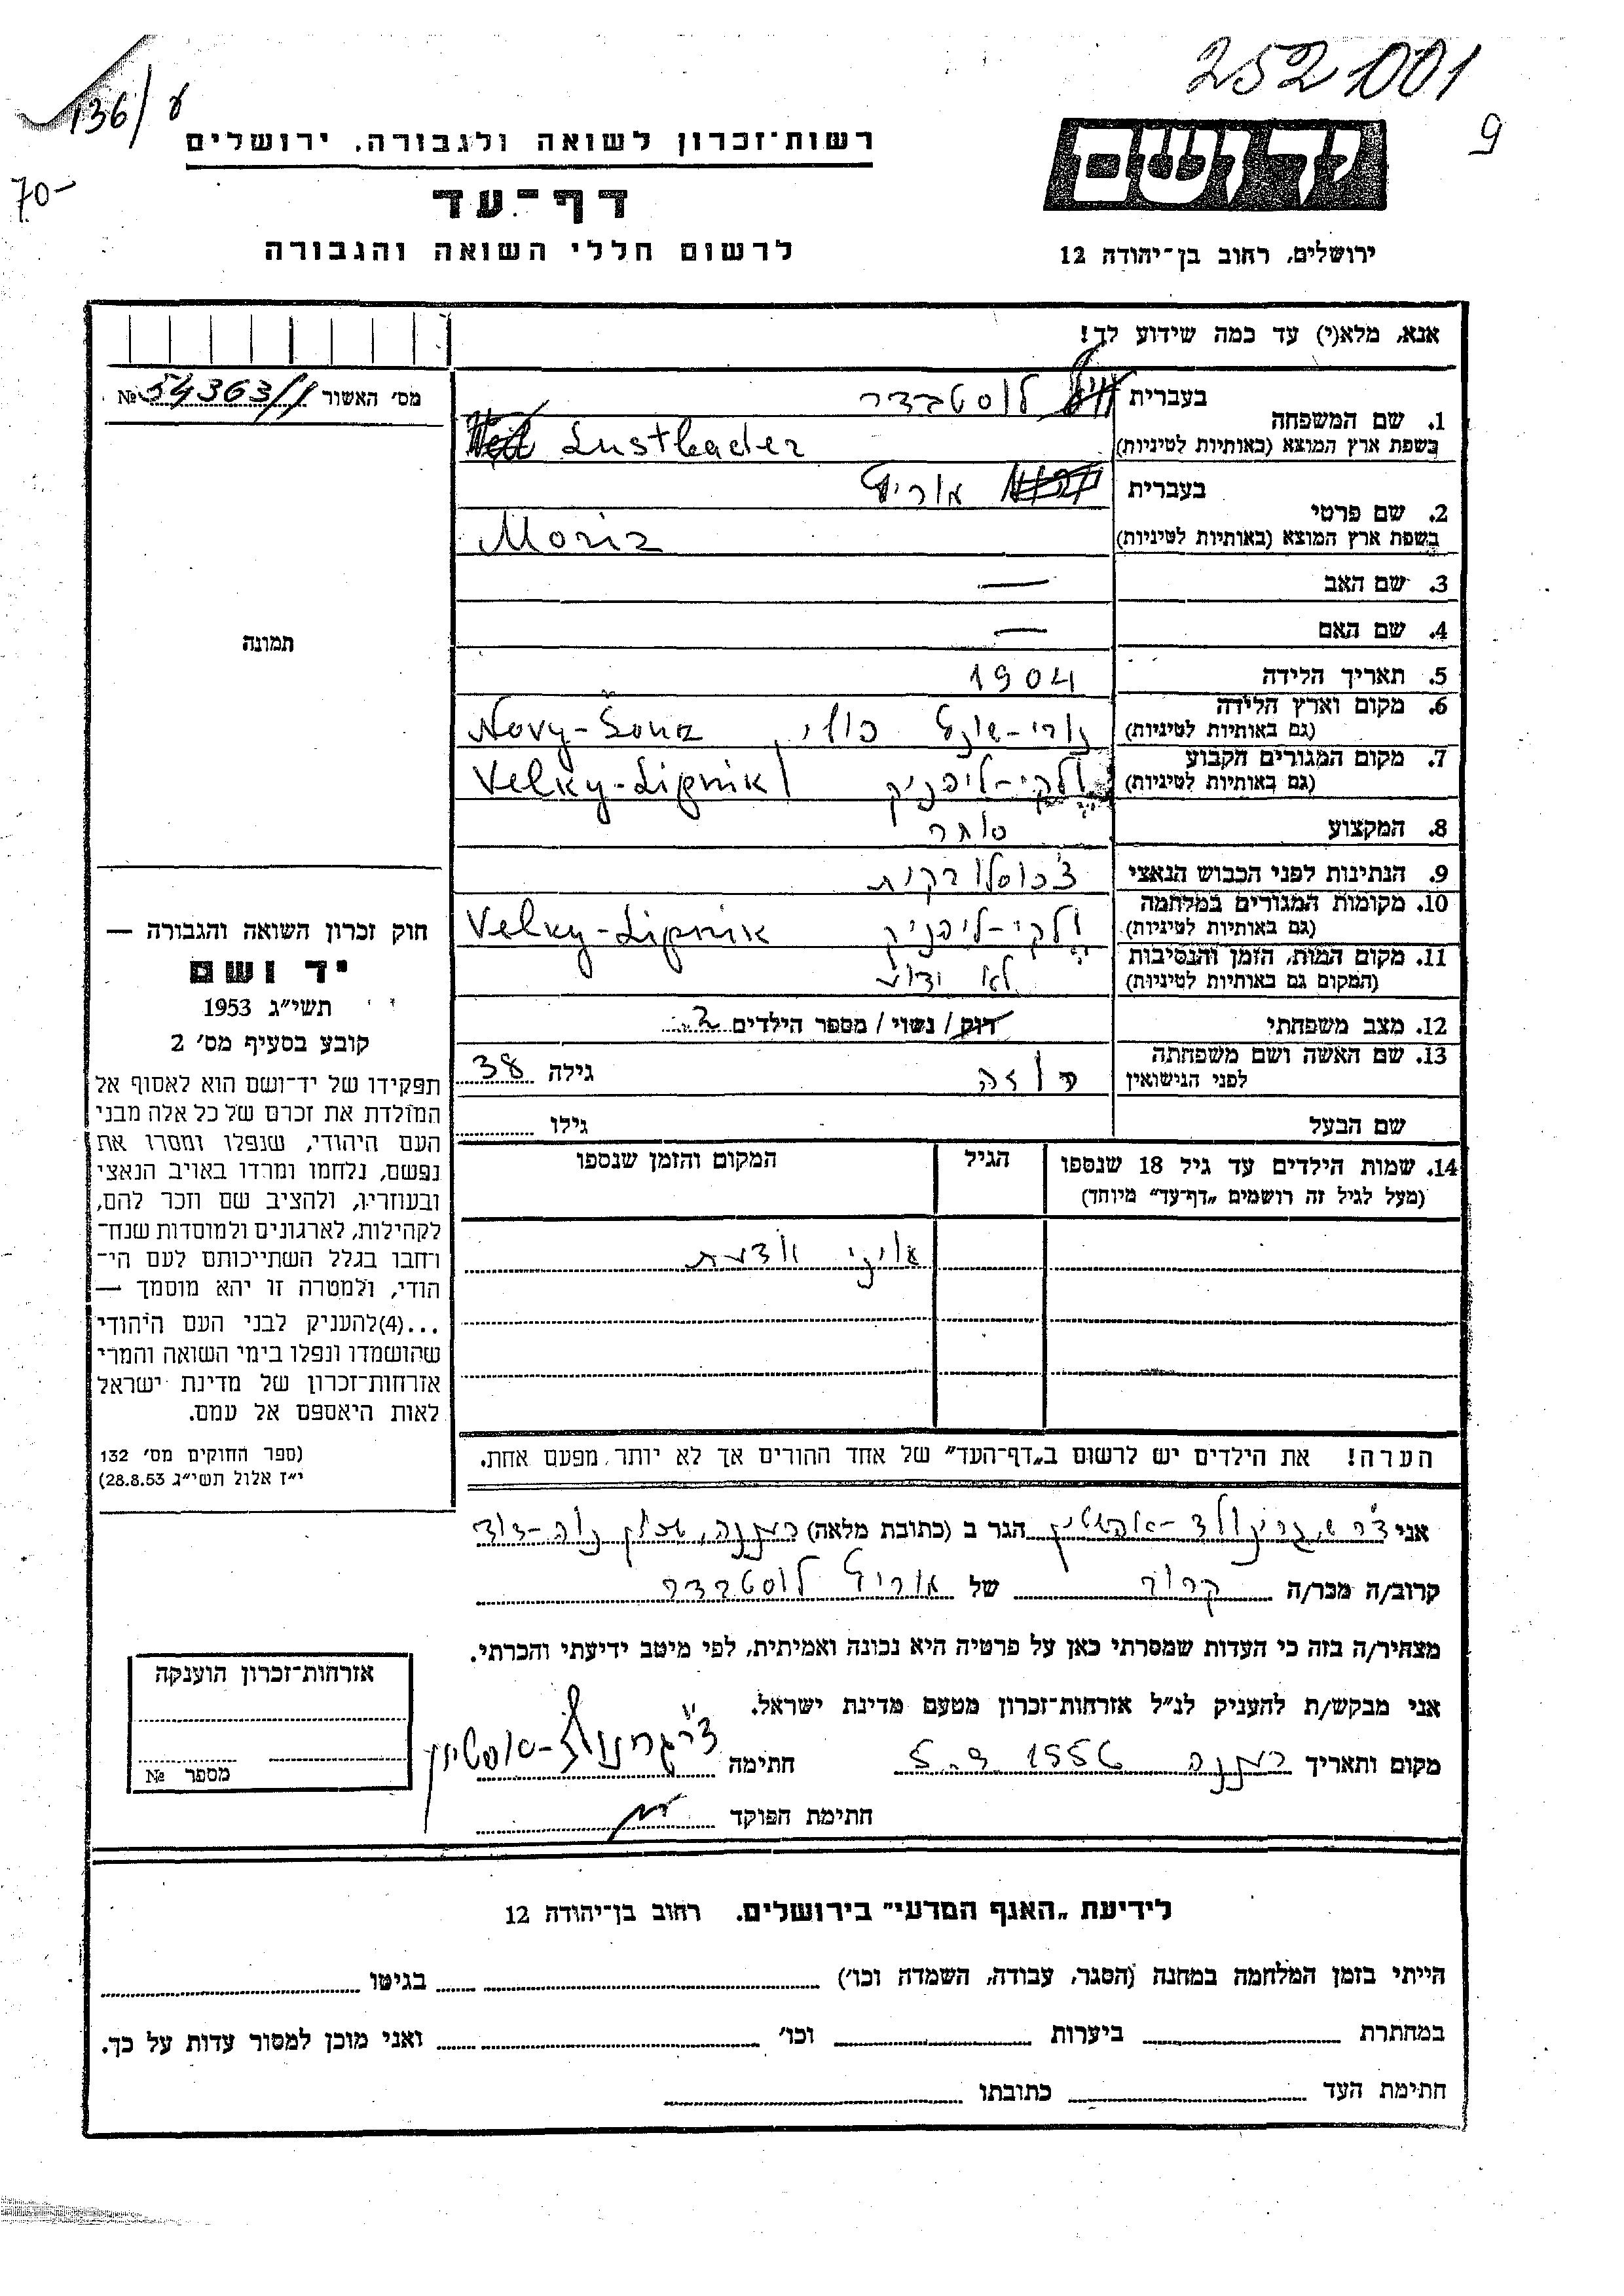 252001
136/8
9
70-
יד ושם
רשות־זכרון לשואה ולגבורה. ירושלים
דף־עד
לרשום חללי השואה והגבורה
ירושלים, רחוב בן־יהודה 12
אנא, מלא(י) עד כמה שידוע לך!
מס׳ האשור № 54363/1
1. שם המשפחה
בעברית לוסטבדר
בשפת ארץ המוצא (באותיות לטיניות) Lustbader
2. שם פרטי
בעברית מוריץ
בשפת ארץ המוצא (באותיות לטיניות) Moriz
3. שם האב —
4. שם האם —
תמונה
5. תאריך הלידה 1904
6. מקום וארץ הלידה
(גם באותיות לטיניות) נובי-שונץ פולין Novy-Šonz
7. מקום המגורים הקבוע
(גם באותיות לטיניות) ולקי-ליפניק Velky-Lipnik
8. המקצוע סוחר
9. הנתינות לפני הכבוש הנאצי צ׳כוסלובקית
10. מקומות המגורים במלחמה
(גם באותיות לטיניות) ולקי-ליפניק Velky-Lipnik
11. מקום המות, הזמן והנסיבות
(המקום גם באותיות לטיניות) לא ידוע
12. מצב משפחתי רוק / נשוי / מספר הילדים 2
13. שם האשה ושם משפחתה
לפני הנישואין רוזה גילה 38
שם הבעל גילו
14. שמות הילדים עד גיל 18 שנספו
(מעל לגיל זה רושמים „דף־עד״ מיוחד)
הגיל
המקום והזמן שנספו
איני יודעת
הערה! את הילדים יש לרשום ב„דף־העד״ של אחד ההורים אך לא יותר מפעם אחת.
חוק זכרון השואה והגבורה —
יד ושם
תשי״ג 1953
קובע בסעיף מס׳ 2
תפקידו של יד־ושם הוא לאסוף אל
המולדת את זכרם של כל אלה מבני
העם היהודי, שנפלו ומסרו את
נפשם, נלחמו ומרדו באויב הנאצי
ובעוזריו, ולהציב שם וזכר להם,
לקהילות, לארגונים ולמוסדות שנח־
רחבו בגלל השתייכותם לעם הי־
הודי, ולמטרה זו יהא מוסמך —
...(4)להעניק לבני העם היהודי
שהושמדו ונפלו בימי השואה והמרי
אזרחות־זכרון של מדינת ישראל
לאות היאספם אל עמם.
(ספר החוקים מס׳ 132
י״ז אלול תשי״ג 28.8.53)
אני הגר ב (כתובת מלאה) רעננה, שכון נוה-דוד
קרוב/ה מכר/ה קרוב של מוריץ לוסטבדר
מצהיר/ה בזה כי העדות שמסרתי כאן על פרטיה היא נכונה ואמיתית, לפי מיטב ידיעתי והכרתי.
אני מבקש/ת להעניק לנ״ל אזרחות־זכרון מטעם מדינת ישראל.
מקום ותאריך רעננה 1956 חתימה
חתימת הפוקד
אזרחות־זכרון הוענקה
מספר №
לידיעת „האגף המדעי״ בירושלים. רחוב בן־יהודה 12
הייתי בזמן המלחמה במחנה (הסגר, עבודה, השמדה וכו׳) בגיטו
במחתרת ביערות וכו׳ ואני מוכן למסור עדות על כך.
חתימת העד כתובתו